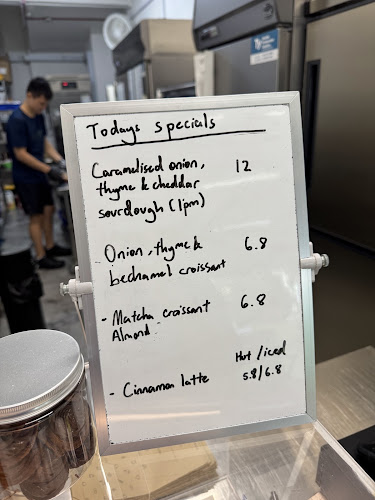 Todays specials
Caramelised onion, 12
thyme & cheddar
sourdough (1pm)
- Onion, thyme & 6.8
bechamel croissant
- Matcha croissant 6.8
Almond -
Hot / iced
- Cinnamon latte 5.8/6.8